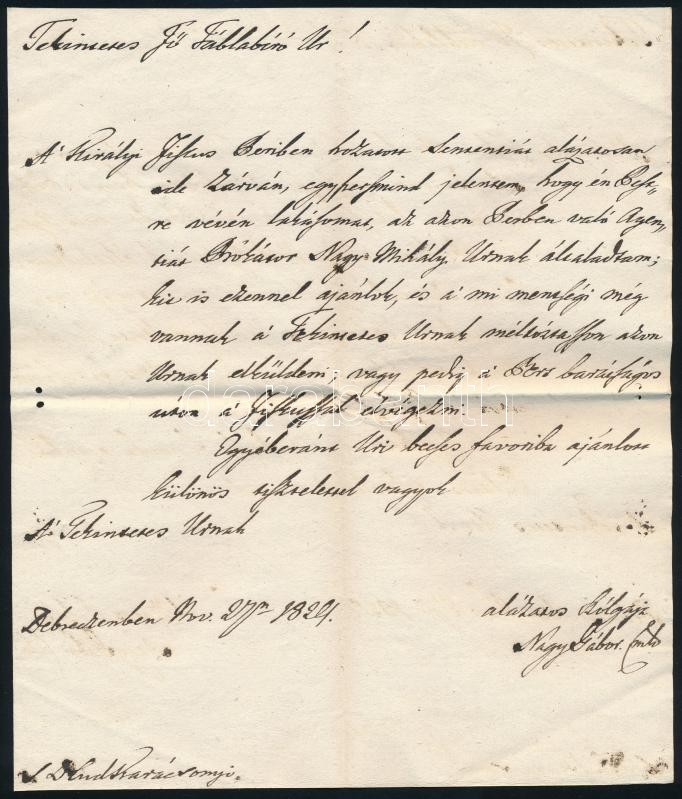 Tekintetes Fő Táblabíró Ur!
A' Királyi Fiscus Periben hozatott Sententiát alázatosan
ide zárván, egyszersmind jelentem, hogy én Pest-
re vévén lakásomat, az azon Perben való Agen-
tiát Prókátor Nagy Mihály Urnak általadtam;
kit is ezennel ajánlok, és a' mi mentségi még
vannak a' Tekintetes Urnak méltóztasson azon
Urnak elküldeni, vagy pedig a' Pert barátságos
úton a' Fiscussal elvégezni.
Egyéberánt Uri becses favoriba ajánlott
különös tisztelettel vagyok
A' Tekintetes Urnak
Debreczenben Nov. 27n 1824.
alázatos Szolgája
Nagy Gábor
darabanth